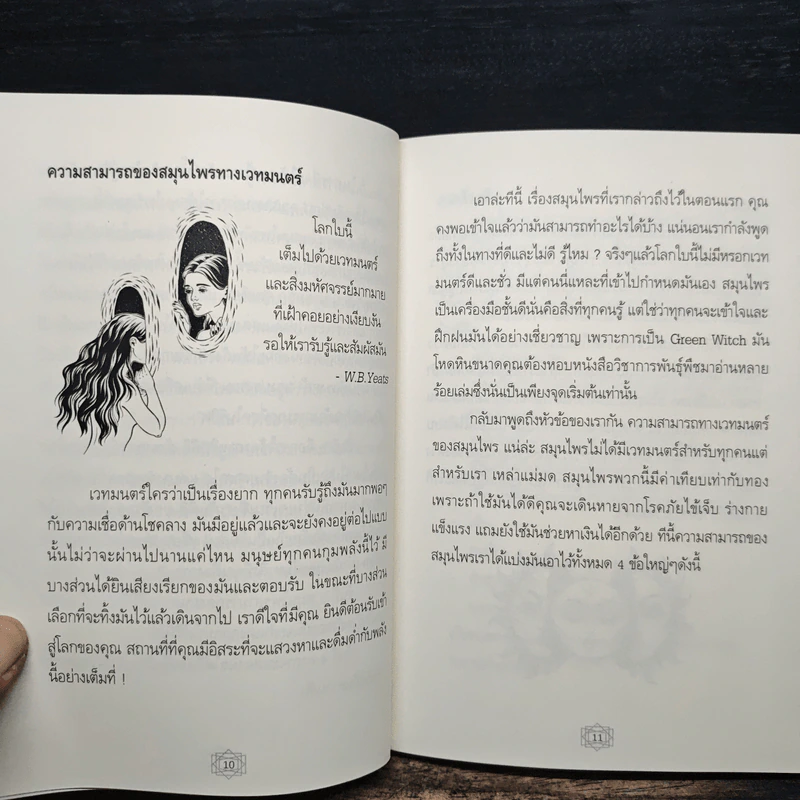 ความสามารถของสมุนไพรทางเวทมนตร์
โลกใบนี้
เต็มไปด้วยเวทมนตร์
และสิ่งมหัศจรรย์มากมาย
ที่เฝ้าคอยอย่างเงียบงัน
รอให้เรารับรู้และสัมผัสมัน
- W.B.Yeats
เวทมนตร์ใครว่าเป็นเรื่องยาก ทุกคนรับรู้ถึงมันมากพอๆ
กับความเชื่อด้านโชคลาง มันมีอยู่แล้วและจะยังคงอยู่ต่อไปแบบ
นั้นไม่ว่าจะผ่านไปนานแค่ไหน มนุษย์ทุกคนกุมพลังนี้ไว้ มี
บางส่วนได้ยินเสียงเรียกของมันและตอบรับ ในขณะที่บางส่วน
เลือกที่จะทิ้งมันไว้แล้วเดินจากไป เราดีใจที่มีคุณ ยินดีต้อนรับเข้า
สู่โลกของคุณ สถานที่ที่คุณมีอิสระที่จะแสวงหาและดื่มด่ำกับพลัง
นี้อย่างเต็มที่ !
10
เอาล่ะทีนี้ เรื่องสมุนไพรที่เรากล่าวถึงไว้ในตอนแรก คุณ
คงพอเข้าใจแล้วว่ามันสามารถทำอะไรได้บ้าง แน่นอนเรากำลังพูด
ถึงทั้งในทางที่ดีและไม่ดี รู้ไหม ? จริงๆแล้วโลกใบนี้ไม่มีหรอกเวท
มนตร์ดีและชั่ว มีแต่คนนี่แหละที่เข้าไปกำหนดมันเอง สมุนไพร
เป็นเครื่องมือชั้นดีนั่นคือสิ่งที่ทุกคนรู้ แต่ใช่ว่าทุกคนจะเข้าใจและ
ฝึกฝนมันได้อย่างเชี่ยวชาญ เพราะการเป็น Green Witch มัน
โหดหินขนาดคุณต้องหอบหนังสือวิชาการพันธุ์พืชมาอ่านหลาย
ร้อยเล่มซึ่งนั่นเป็นเพียงจุดเริ่มต้นเท่านั้น
กลับมาพูดถึงหัวข้อของเรากัน ความสามารถทางเวทมนตร์
ของสมุนไพร แน่ล่ะ สมุนไพรไม่ได้มีเวทมนตร์สำหรับทุกคนแต่
สำหรับเรา เหล่าแม่มด สมุนไพรพวกนี้มีค่าเทียบเท่ากับทอง
เพราะถ้าใช้มันได้ดีคุณจะเดินหายจากโรคภัยไข้เจ็บ ร่างกาย
แข็งแรง แถมยังใช้มันช่วยหาเงินได้อีกด้วย ทีนี้ความสามารถของ
สมุนไพรเราได้แบ่งมันเอาไว้ทั้งหมด 4 ข้อใหญ่ๆดังนี้
11